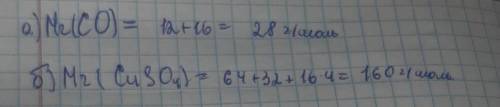 а.) Mr(CO) = 12+16 = 28 г/моль
б) Mr(CuSO₄) = 64+32+16·4 = 160 г/моль